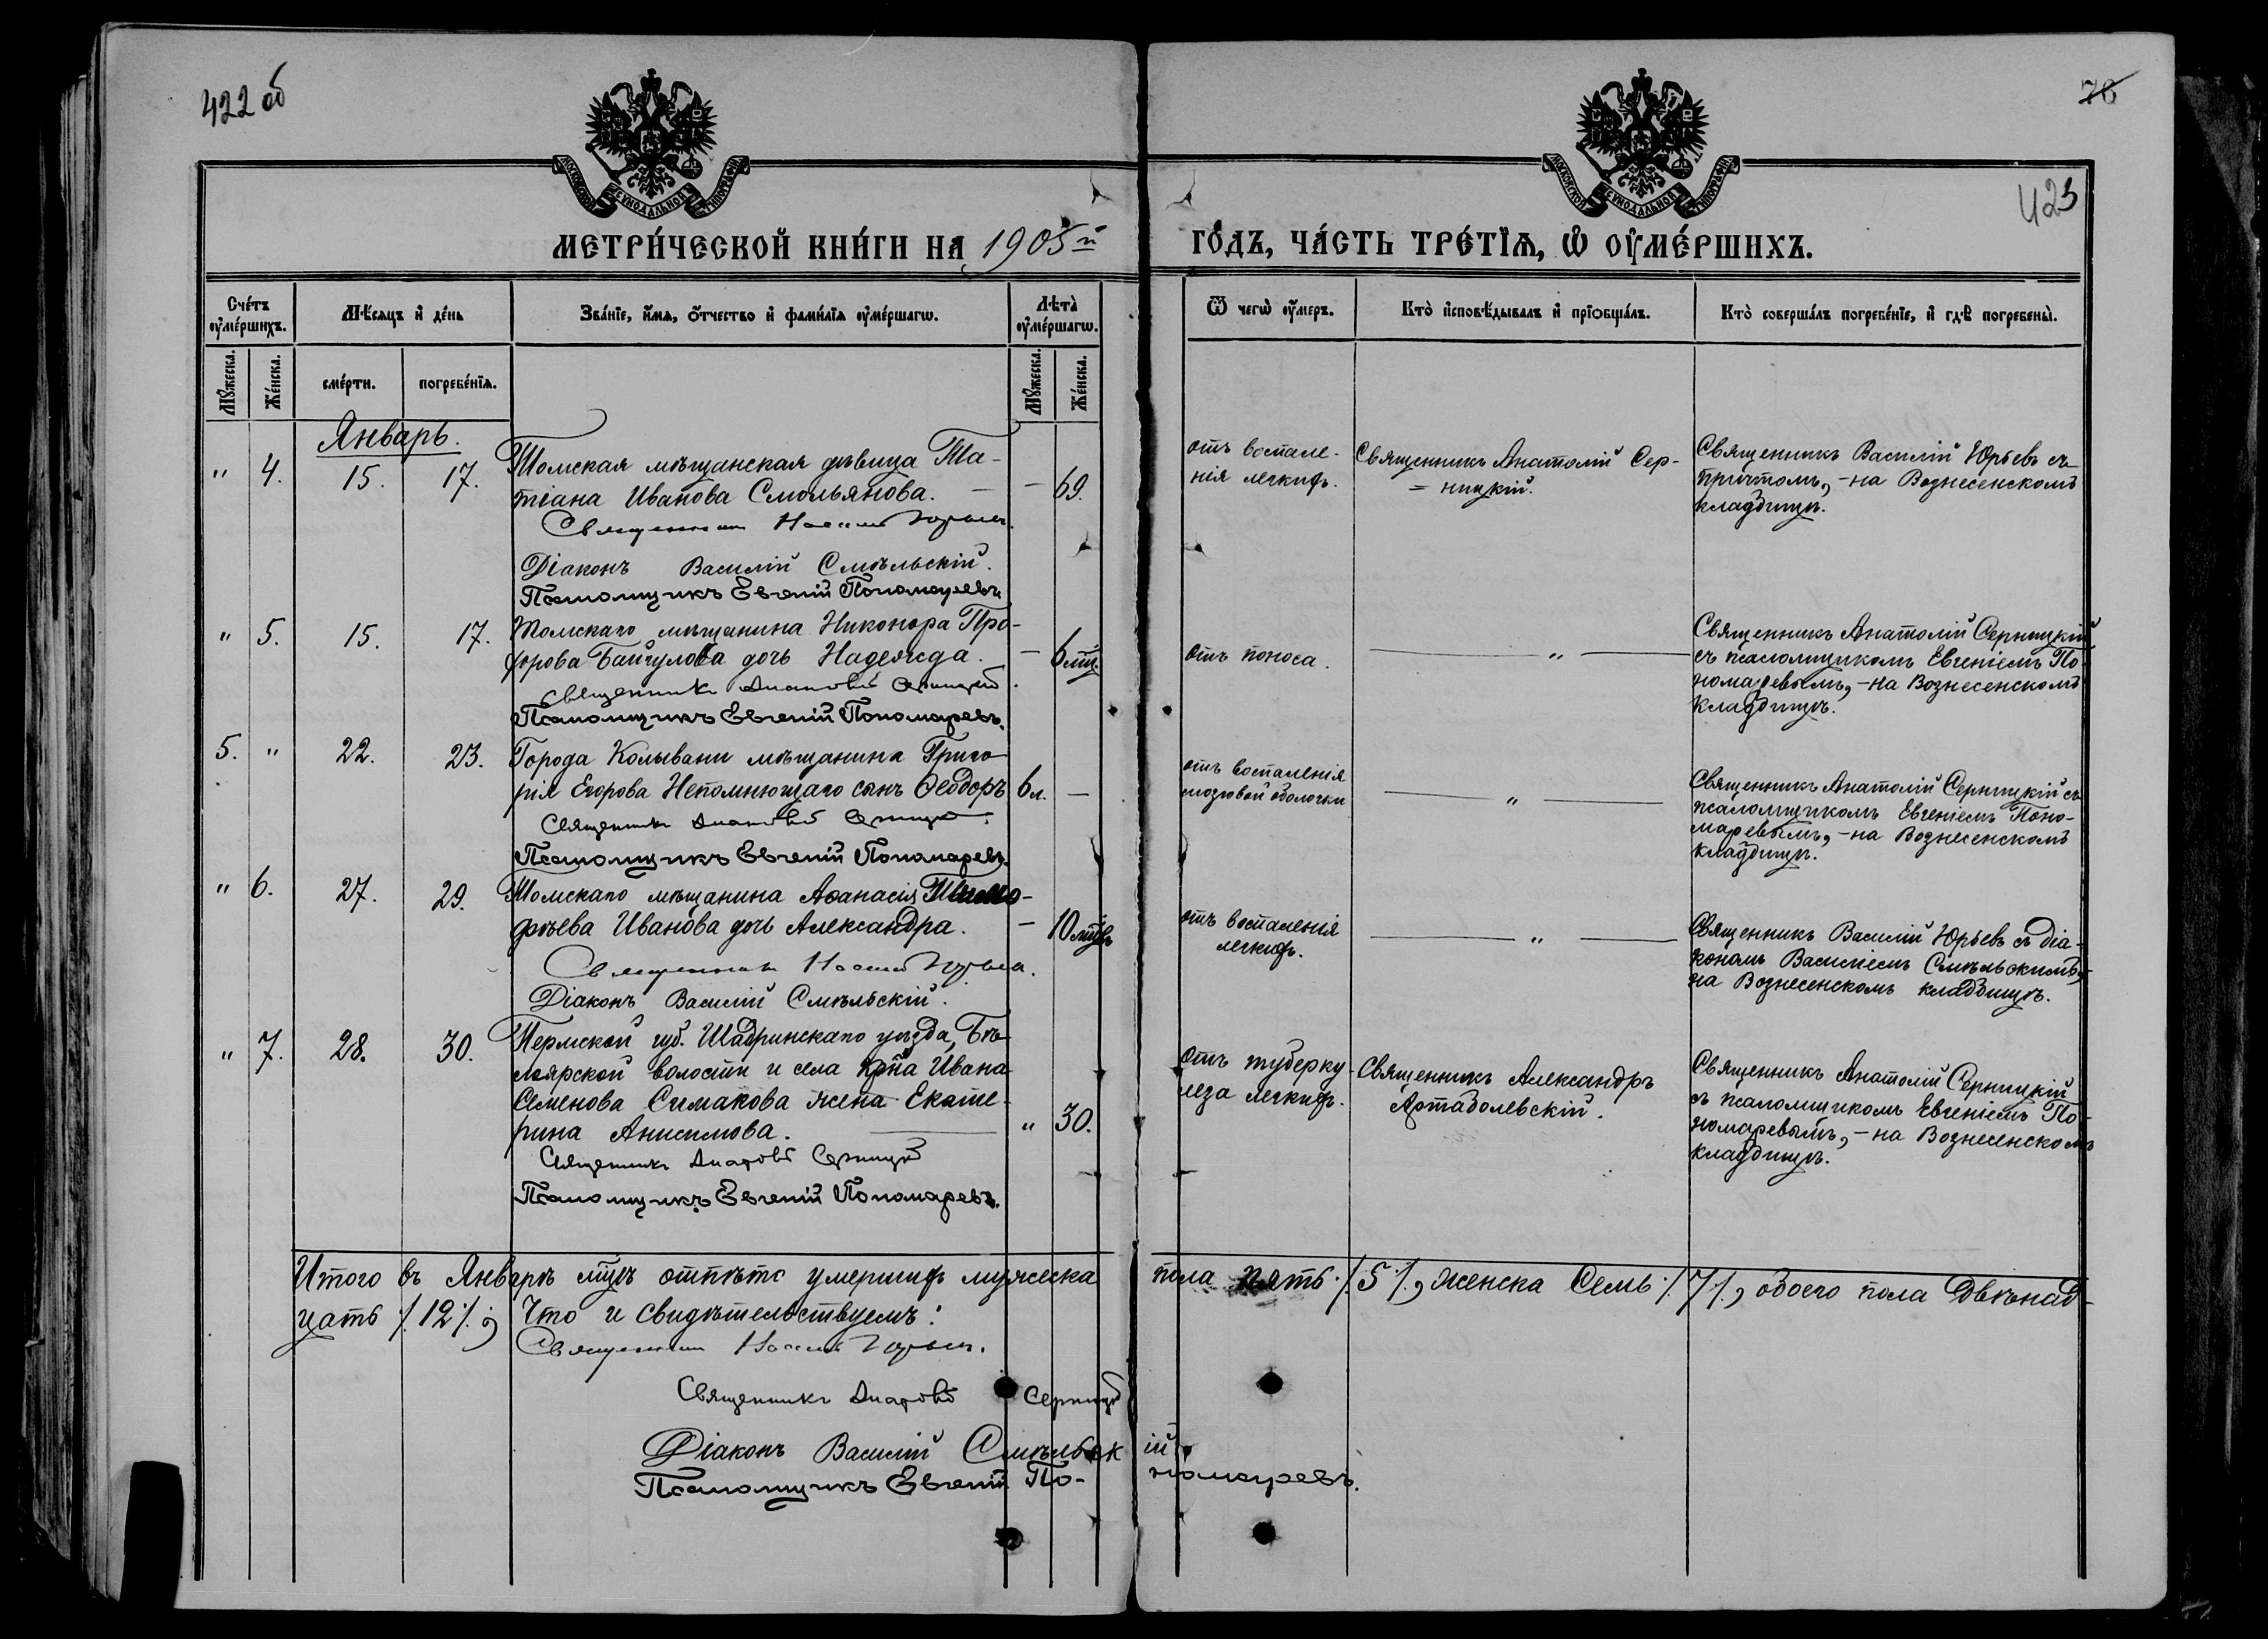 422 об
76
423
МОСКОВСКОЙ СѴНОДАЛЬНОЙ ТИПОГРАФІИ
МОСКОВСКОЙ СѴНОДАЛЬНОЙ ТИПОГРАФІИ
МЕТРИ́ЧЕСКОЙ КНИ́ГИ НА 1905й
ГО́ДЪ, ЧА́СТЬ ТРЕ́ТІѦ, Ѡ҆ ОУ҆МЕ́РШИХЪ.
Сче́тъ оу҆ме́ршихъ.
Мѣ́сяцъ и҆ де́нь
Зва́нїе, и҆́мя, ѻ҆́тчество и҆ фами́лїя оу҆ме́ршагѡ.
Лѣта̀ оу҆ме́ршагѡ.
Ѿ чегѡ̀ оу҆́меръ.
Кто̀ и҆сповѣ́дывалъ и҆ прїѡбща́лъ.
Кто̀ соверша́лъ погребе́нїе, и҆ гдѣ̀ погребены̀.
Мꙋ́жеска.
Же́нска.
сме́рти.
погребе́нїя.
Мꙋ́жеска.
Же́нска.
Январь.
" 4. 15. 17. Томская мѣщанская дѣвица Та-
тіана Иванова Смольянова. — — 69.
Священникъ Юрьевъ.
Діаконъ Василій Смѣльскій.
Псаломщикъ Евгеній Пономаревъ
отъ воспале-
нія легкихъ.
Священникъ Анатолій Сер-
= ницкій.
Священникъ Василій Юрьевъ съ
причтомъ, - на Вознесенскомъ
кладбищѣ.
" 5. 15. 17. Томскаго мѣщанина Никонора Про-
форова Байгулова дочь Надежда. — 6 мц.
Священникъ Анатолій Серницкій.
Псаломщикъ Евгеній Пономаревъ.
отъ поноса.
— " —
Священникъ Анатолій Серницкій
съ псаломщикомъ Евгеніемъ По-
номаревымъ, - на Вознесенскомъ
кладбищѣ.
5. " 22. 23. Города Колывани мѣщанина Григо-
рія Егорова Непомнющаго сынъ Ѳеодоръ 6 л. —
Священникъ Анатолій Серницкій.
Псаломщикъ Евгеній Пономаревъ.
отъ воспаленія
мозговой оболочки
— " —
Священникъ Анатолій Серницкій съ
псаломщикомъ Евгеніемъ Поно-
маревымъ, - на Вознесенскомъ
кладбищѣ.
" 6. 27. 29. Томскаго мѣщанина Аѳанасія Тимо-
фѣева Иванова дочь Александра. — 10 мцвъ
Священникъ Юрьевъ.
Діаконъ Василій Смѣльскій.
отъ воспаленія
легкихъ.
— " —
Священникъ Василій Юрьевъ съ діа-
кономъ Василіемъ Смѣльскимъ, -
на Вознесенскомъ кладбищѣ.
" 7. 28. 30. Пермской губ. Шадринскаго уѣзда, Бѣ-
лоярской волости и села крна Ивана
Семенова Симакова жена Екате-
рина Анисимова. — " 30.
Священникъ Анатолій Серницкій
Псаломщикъ Евгеній Пономаревъ.
отъ туберку-
леза легкихъ.
Священникъ Александръ
Артаболевскій.
Священникъ Анатолій Серницкій
съ псаломщикомъ Евгеніемъ По-
номаревымъ, - на Вознесенскомъ
кладбищѣ.
Итого въ Январѣ мцѣ отпѣто умершихъ мужеска пола пять /. 5 /., женска Семь /. 7 /., обоего пола Двѣнад-
цать /. 12 /.; Что и свидѣтельствуемъ:
Священникъ Юрьевъ.
Священникъ Анатолій Серницкій
Діаконъ Василій Смѣльскій
Псаломщикъ Евгеній По-номаревъ.